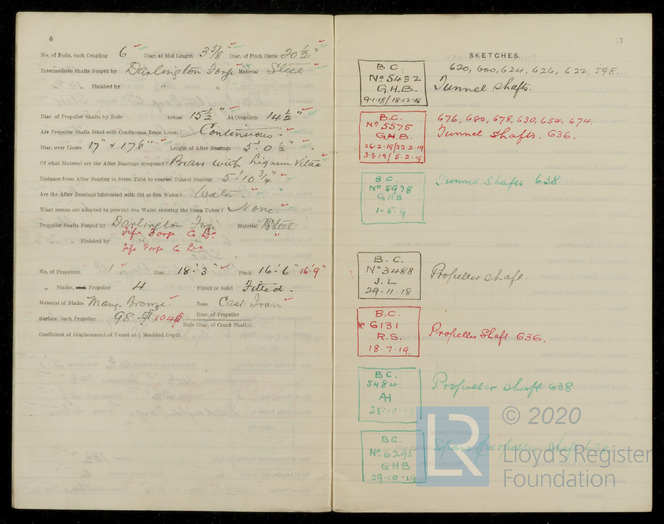 6
No. of Bolts, each Coupling 6 Diar. at Mid Length 3 5/8" Diar. of Pitch Circle 20 1/2"
Intermediate Shafts Forged by Darlington Forge Material Steel
Finished by " "
Diar. of Propeller Shafts by Rule Actual 15 1/2" At Couplings 14 1/2"
Are Propeller Shafts fitted with Continuous Brass Liners Continuous
Diar. over Liners 17" & Length of After Bearings 5' 0 1/2"
Of what Material are the After Bearings composed Brass with Lignum Vitae
Distance from After Bearing in Stern Tube to nearest Tunnel Bearing 5' 10 3/4"
Are the After Bearings lubricated with Oil or Sea Water Water
What means are adopted to prevent Sea Water entering the Stern Tubes None
Propeller Shafts Forged by Darlington Forge Material Steel
Fife Forge Co Ltd
Finished by "
Fife Forge Co
No. of Propellers 1 Diar. 18'·3" Pitch 16'·6" 16'·9"
" Blades, each Propeller 4 Fitted or Solid Fitted
Material of Blades Mang. Bronze Boss Cast Iron
Surface, each Propeller 98 104 Diar. of Propeller
Rule Diar. of Crank Shafts
Coefficient of Displacement of Vessel at Moulded Depth
7
SKETCHES.
B.C.
No 5432
G.H.B.
9-1-18/18-12-18
620, 660, 624, 626, 622, 598.
Tunnel Shafts.
B.C.
No 5575
G.H.B.
26-2-19/22-2-19
3-3-19/5-2-19
676, 680, 678, 630, 654, 674
Tunnel Shafts, 636.
B.C.
No 5978
G.H.B
Tunnel Shafts 638
B.C.
No 3488
J.L
29-11-18
Propeller Shaft.
B.C.
No 6131
R.S.
18-7-19
Propeller Shaft 636.
B.C.
5484
AH
Propeller Shaft 638
B.C.
No 6245
G.H.B
Spare Propeller Shaft
© 2020
LR
Lloyd's Register
Foundation